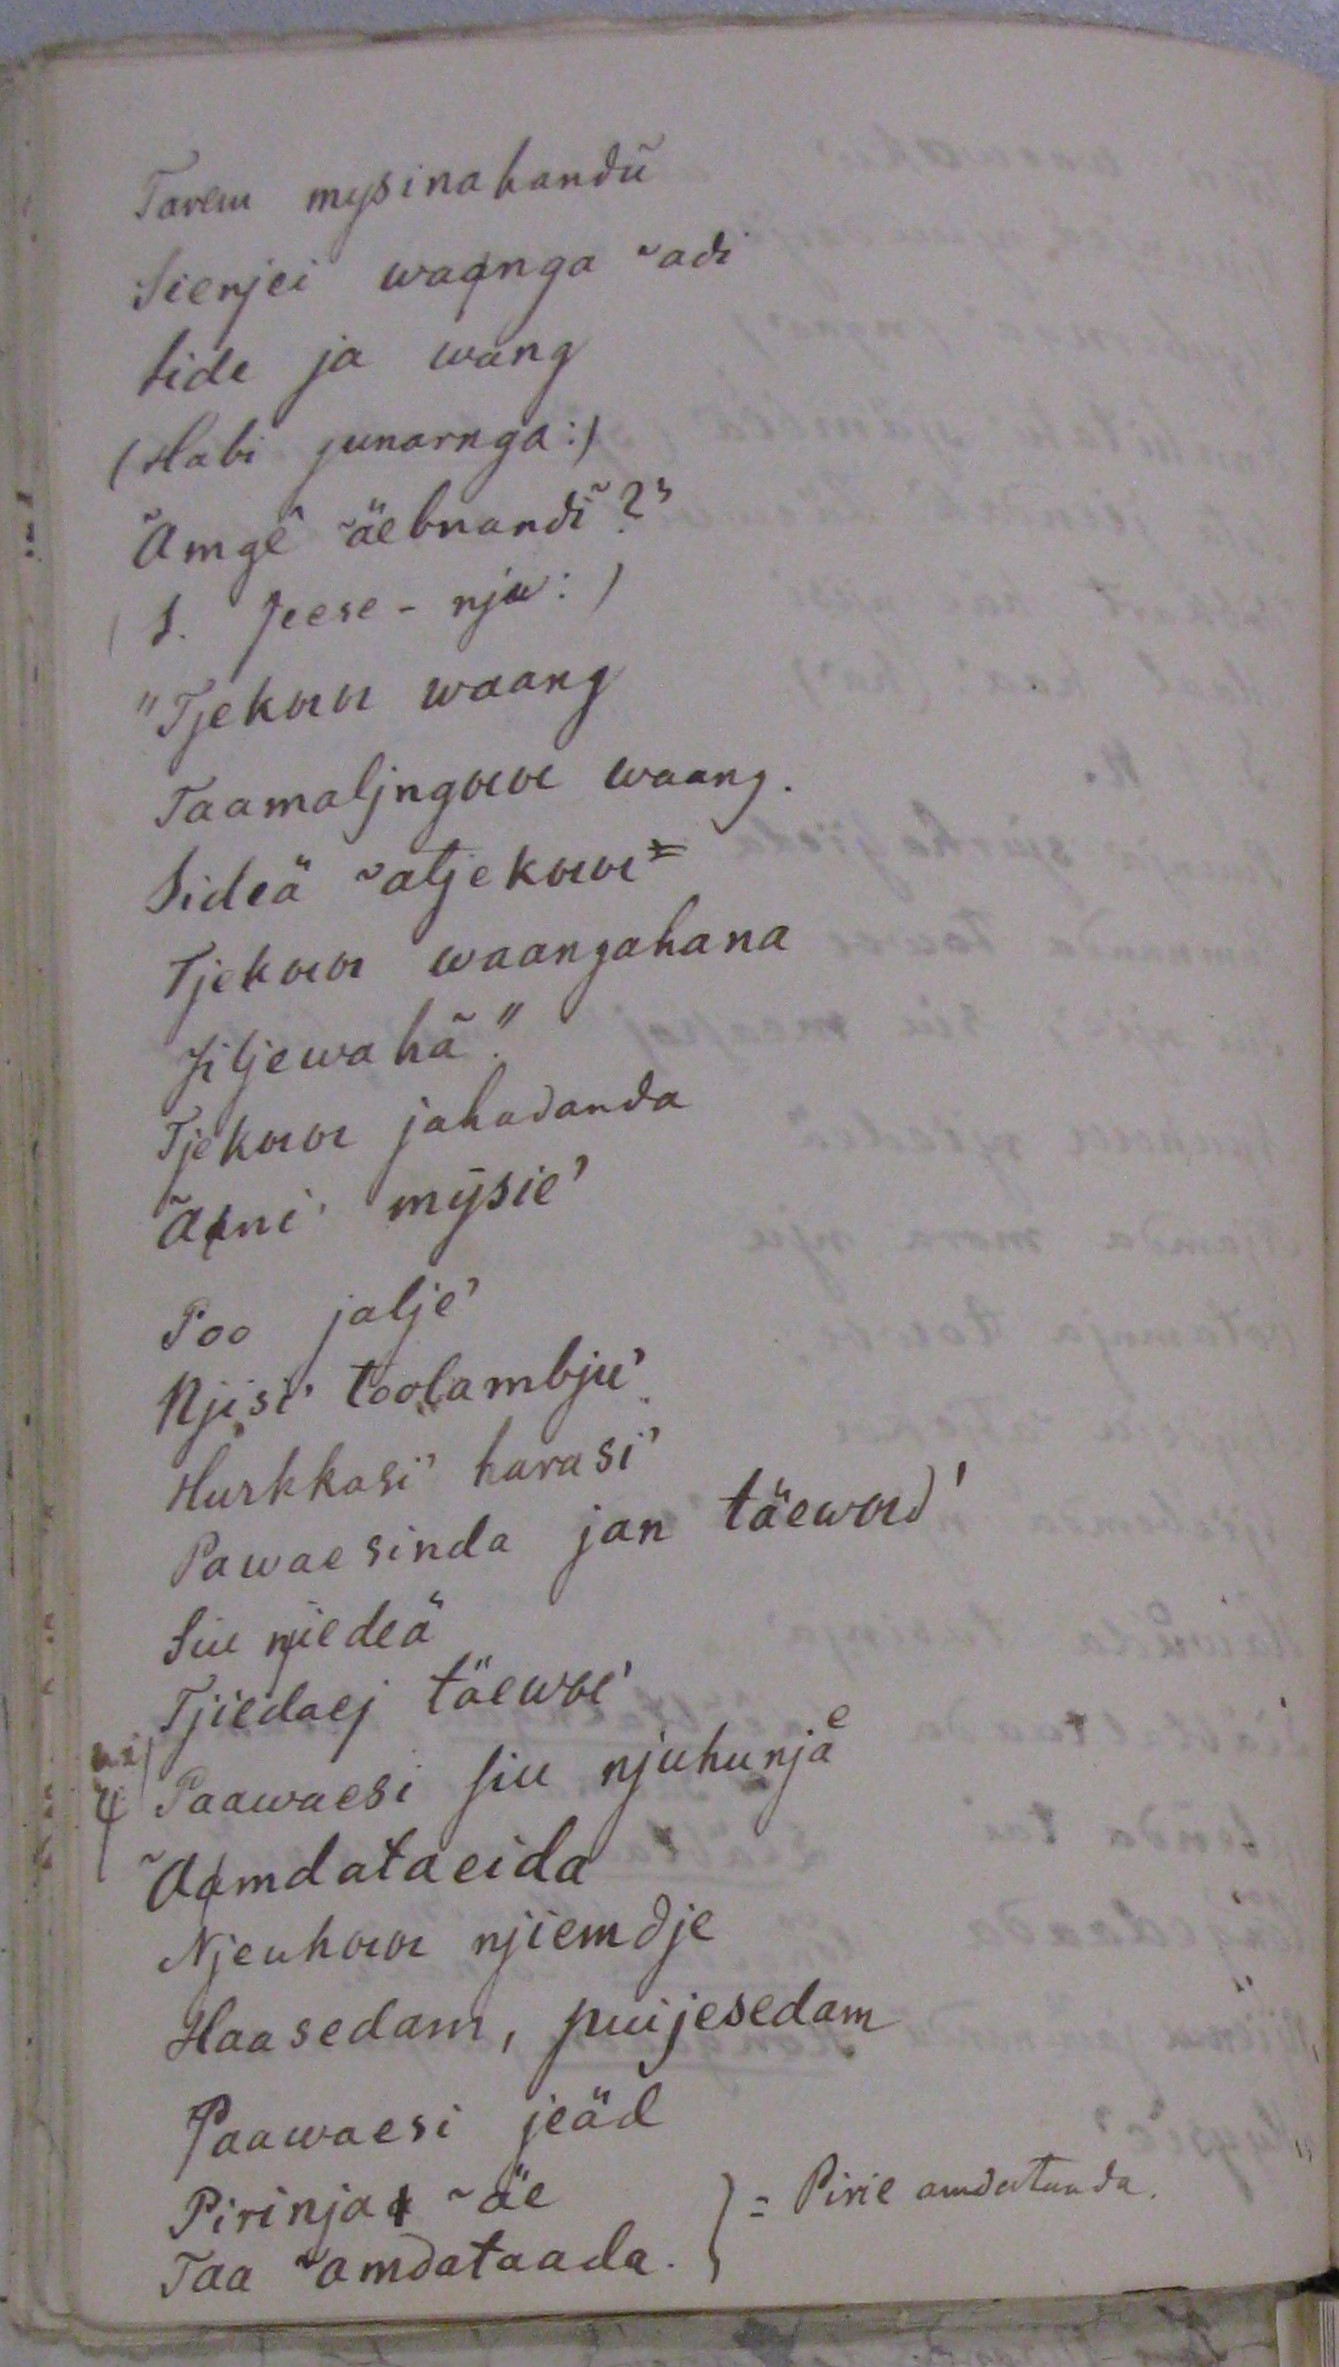 Tarem mysinahandũ
Sienjei waanga ~adi
Side ja wang
(Habi junarnga:)
Ãmgê ~äebnandĩ?"
(S. Jeese-nju:)
"Tjekaıaı waang
Taamaljngoeoe waang.
Sideä ~atjekaıaı=
Tjekaıaı waangahana
Jiljewahã."
Tjekaıaı jahadanda
Ãani' mȳsie'
Poo jalje'
Njisi' toolambju'
Hurkkasi' harasi'
Pawaesinda jan täewad'
Siu njiedeä
Tjiedaej täewoe'
Paawaesi siu njuhunjae
~Aamdataeida
Njeuhaıaı njiemdje
Haasedam, puijesedam
Paawaesi jeäd
Pirinja ~äe
Taa ~amdataada. } = Pirie amdataada.